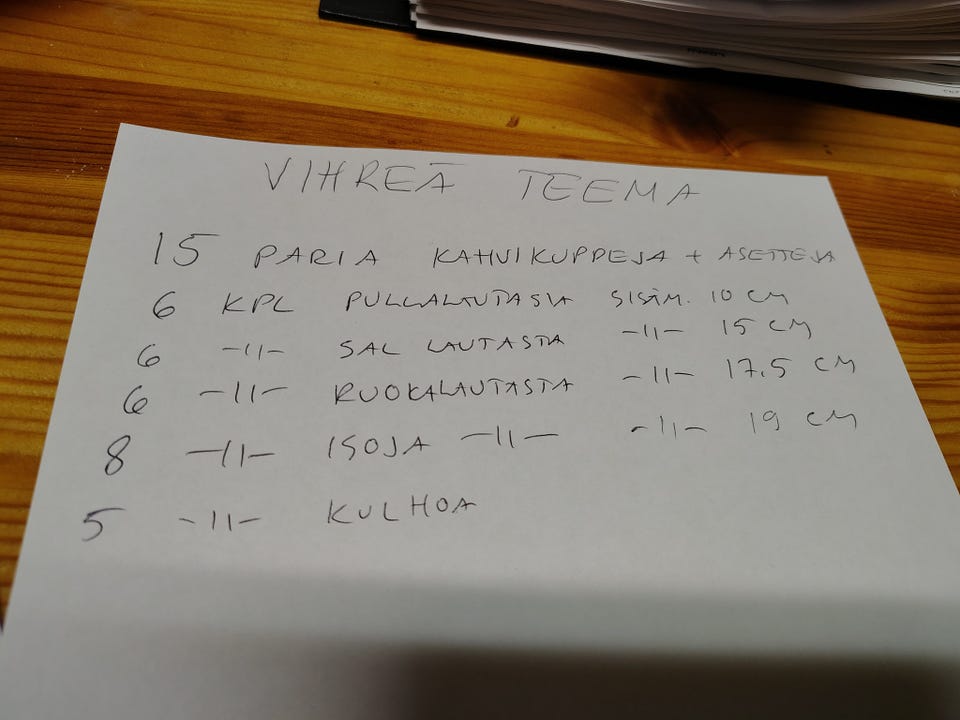 VIHREÄ TEEMA
15 PARIA KAHVIKUPPEJA + ASETTEJA
6 KPL PULLALAUTASIA SISÄM. 10 CM
6 -||- SAL LAUTASTA -||- 15 CM
6 -||- RUOKALAUTASTA -||- 17.5 CM
8 -||- ISOJA -||- -||- 19 CM
5 -||- KULHOA